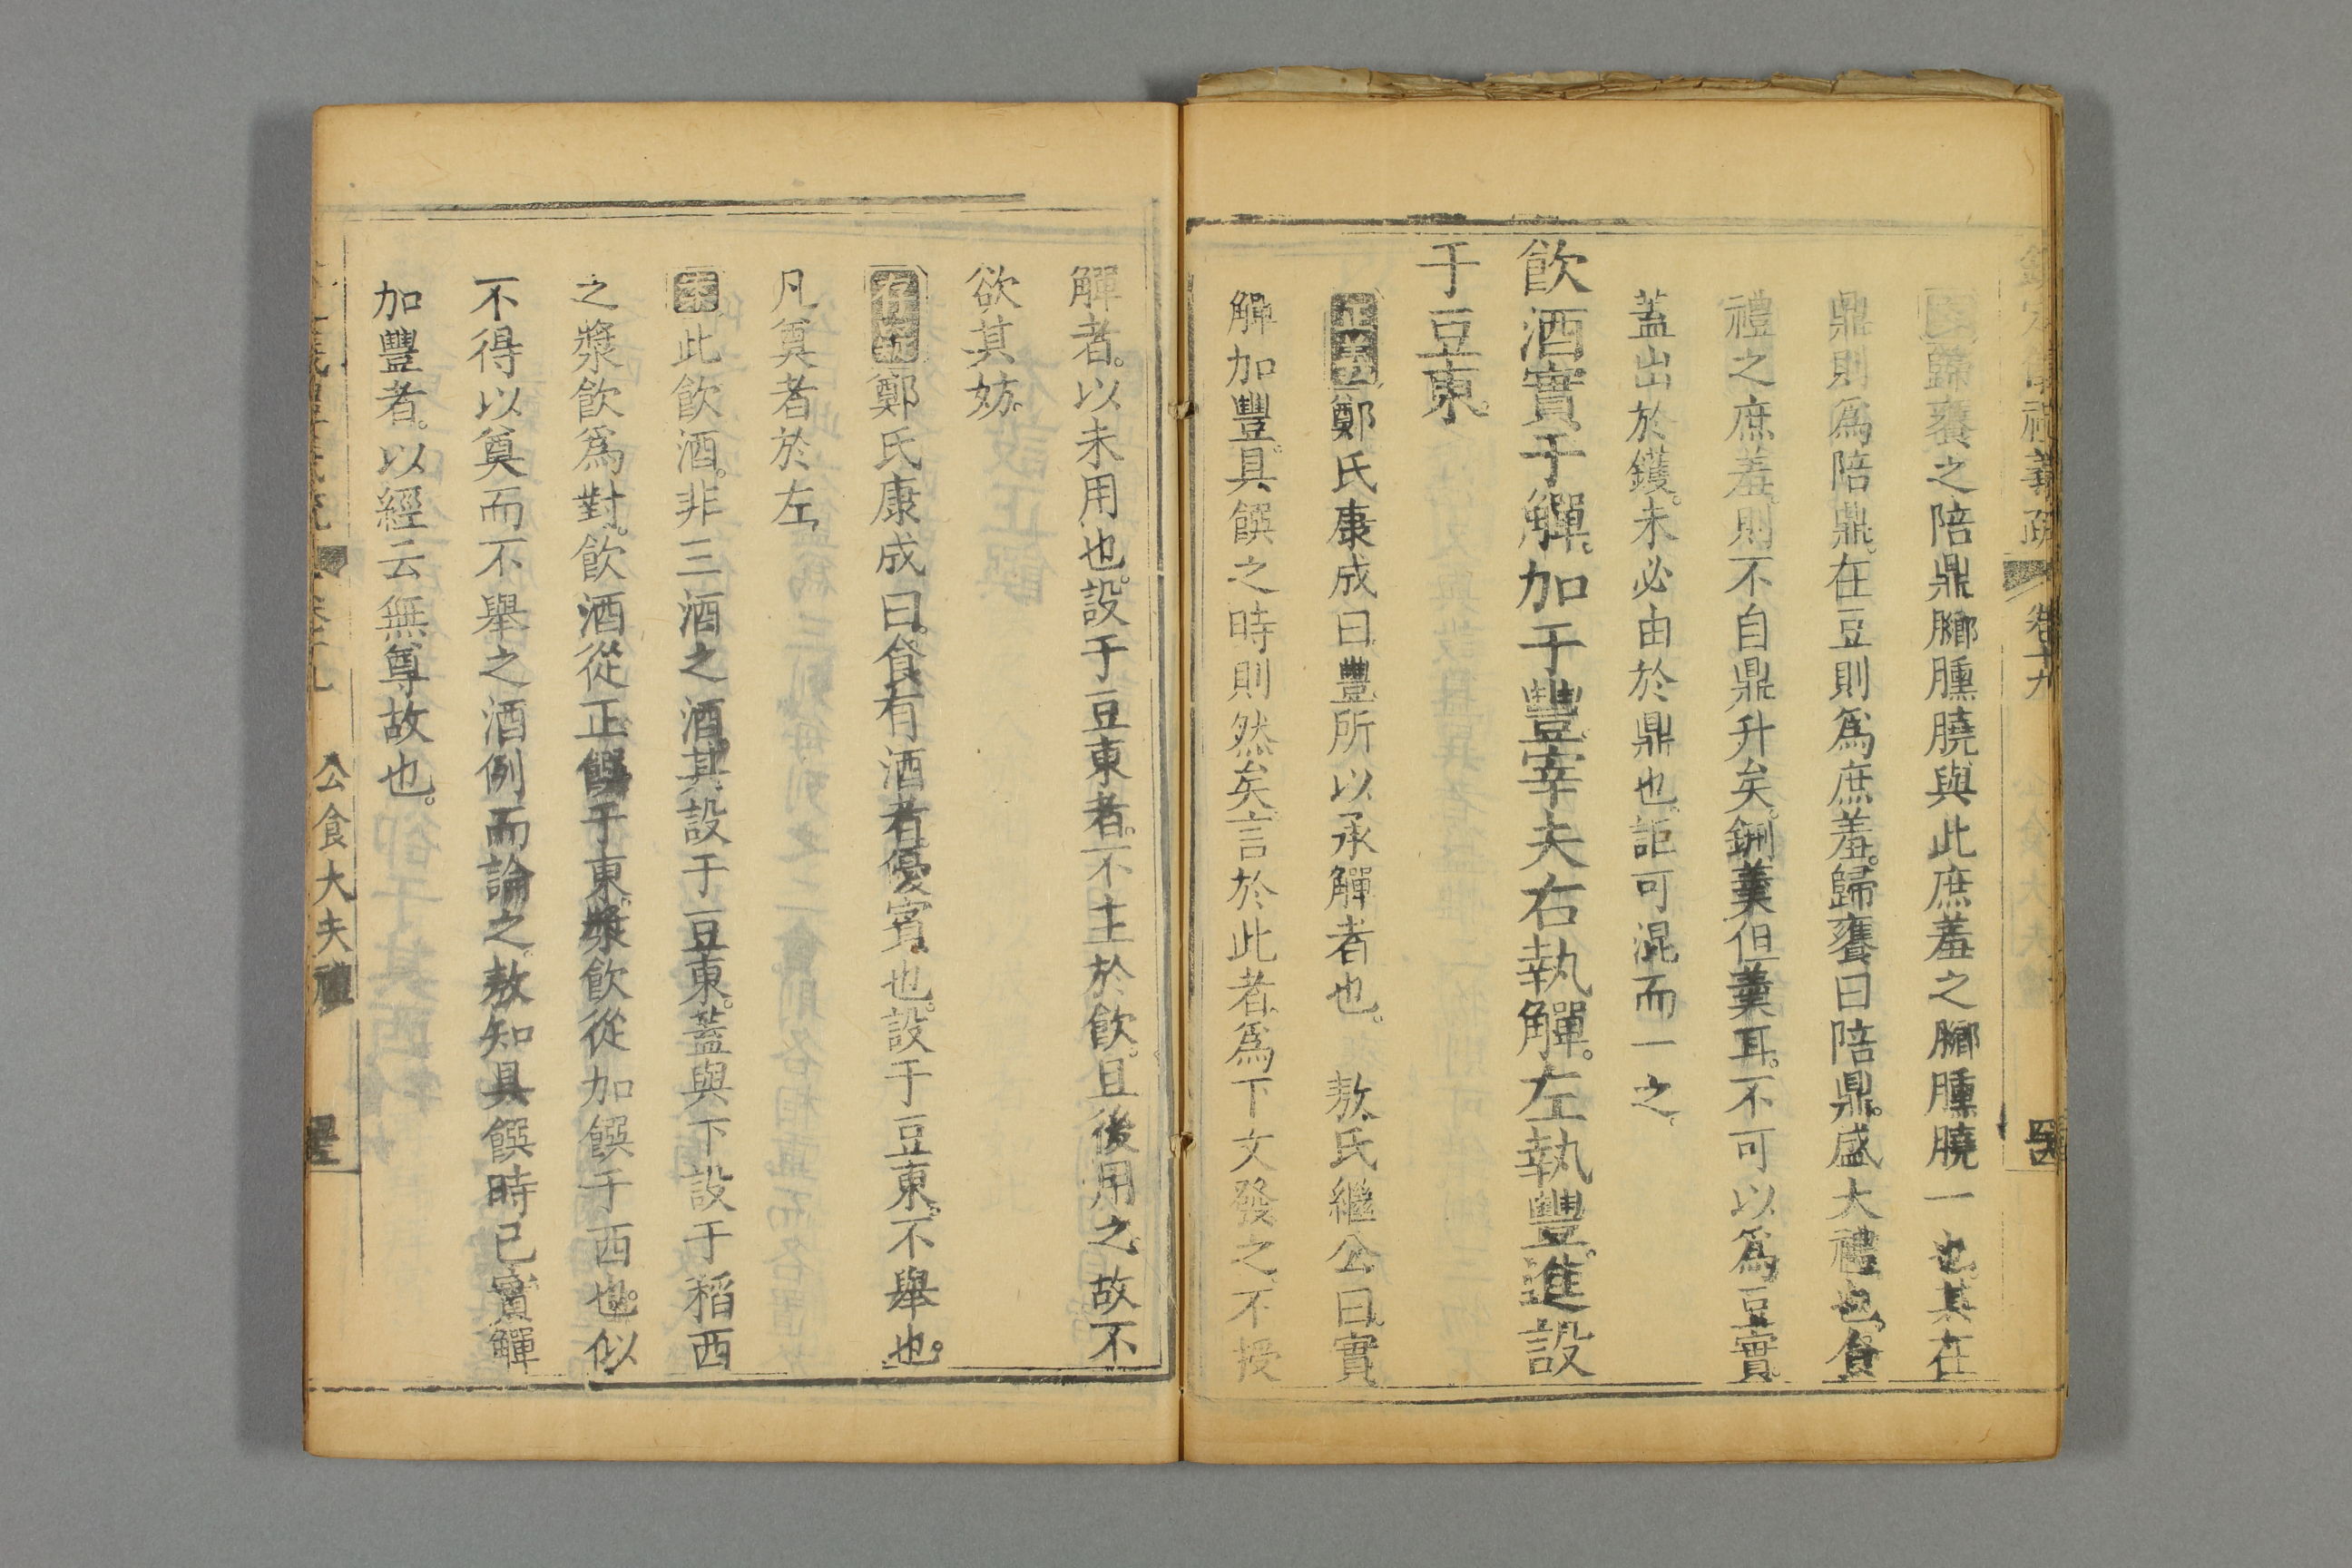 欽定儀禮義疏 卷十九
歸饔之陪鼎膷臐膮與此庶羞之膷臐膮一也其在
鼎則爲陪鼎在豆則爲庶羞歸饔曰陪鼎盛大禮也食
禮之庶羞則不自鼎升矣鉶羹但羹耳不可以爲豆實
蓋出於鑊未必由於鼎也詎可混而一之
飲酒實于觶加于豐宰夫右執觶左執豐進設
于豆東
正義鄭氏康成曰豐所以承觶者也 敖氏繼公曰實
觶加豐具饌之時則然矣言於此者爲下文發之不授
觶者以未用也設于豆東者不主於飲且後用之故不
欲其妨
存疑鄭氏康成曰食有酒者優賓也設于豆東不舉也
凡奠者於左
案此飲酒非三酒之酒其設于豆東蓋與下設于稻西
之漿飲爲對飲酒從正饌于東漿飲從加饌于西也似
不得以奠而不舉之酒例而論之敖知具饌時已實觶
加豐者以經云無尊故也
公食大夫禮